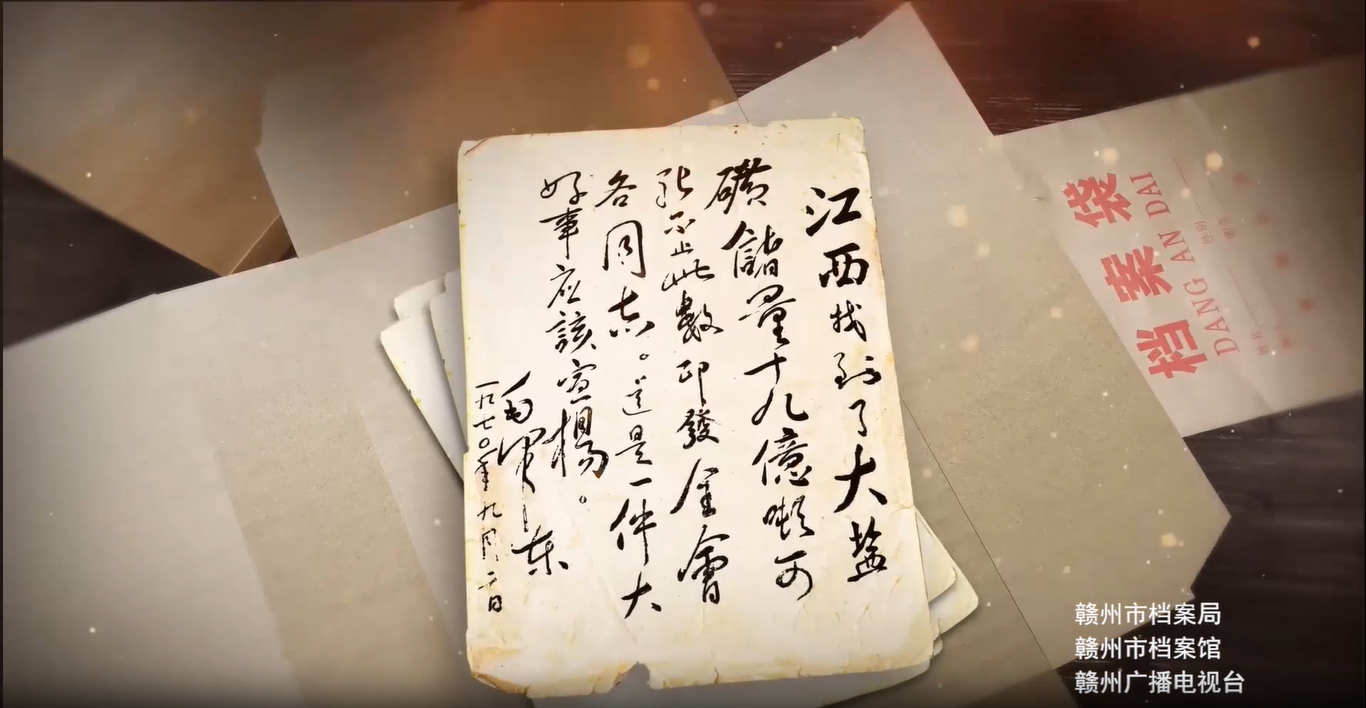 江西找到了大盐
礦儲量十九億噸可
能不止此數印發全會
各同志。这是一件大
好事应該宣揚。
毛泽东
一九七〇年九月二日
档案袋
DANG AN DAI
赣州市档案局
赣州市档案馆
赣州广播电视台